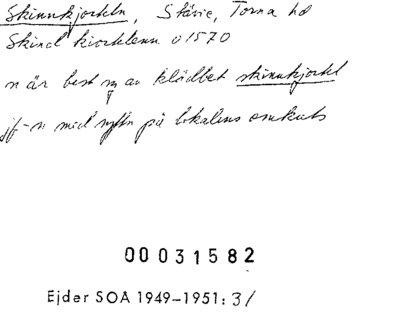 Skinnkjorteln, Stävie, Torna hd
Skind kiortlenn o 1570
n är best av klädbet skinnkjortel
jf-n med syftn på lokalens
00031582
Ejder SOA 1949–1951: 31